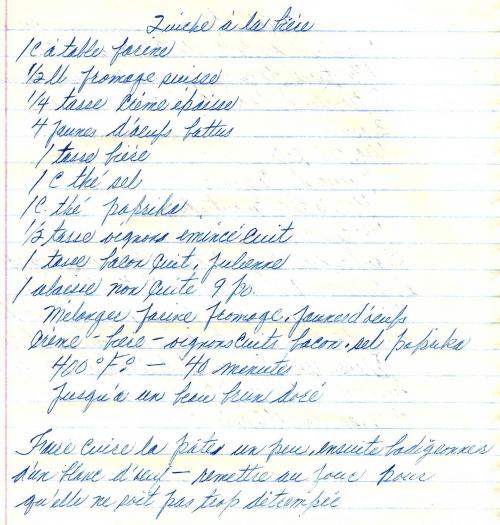 Quiche à la bière
1 C à table farine
1/2 lb fromage suisse
1/4 tasse crème épaisse
4 jaunes d'oeufs battus
1 tasse bière
1 C thé sel
1 C. thé paprika
1/2 tasse oignons émincé cuit
1 tasse bacon cuit, julienne
1 abaisse non cuite 9 po.
Mélanger farine fromage, jaunes d'oeufs
crème - bière - oignons cuits bacon, sel paprika
400° F° — 40 minutes
jusqu'à un beau brun doré
Faire cuire la pâte un peu, ensuite badigeonner
d'un blanc d'oeuf — remettre au four pour
qu'elle ne soit pas trop détrempée